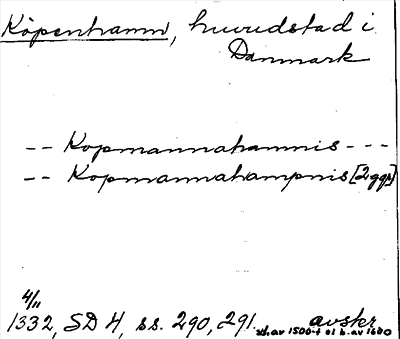 Köpenhamn, huvudstad i
Danmark
-- Kopmannahamnis ---
-- Kopmannahampnis [2 ggr]
4/11
1332, SD 4, ss. 290, 291. avskr
av 1500-t el b. av 1600